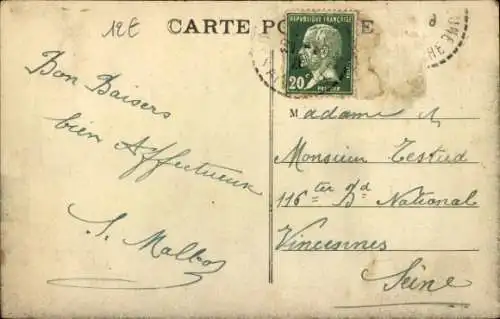 12€
CARTE PO E
RÉPUBLIQUE FRANÇAISE
20c
PASTEUR
POSTES
Bon Baisers
bien Affectueux
S. Malbos
Madame M
Monsieur Testud
116 ter Bd National
Vincennes
Seine